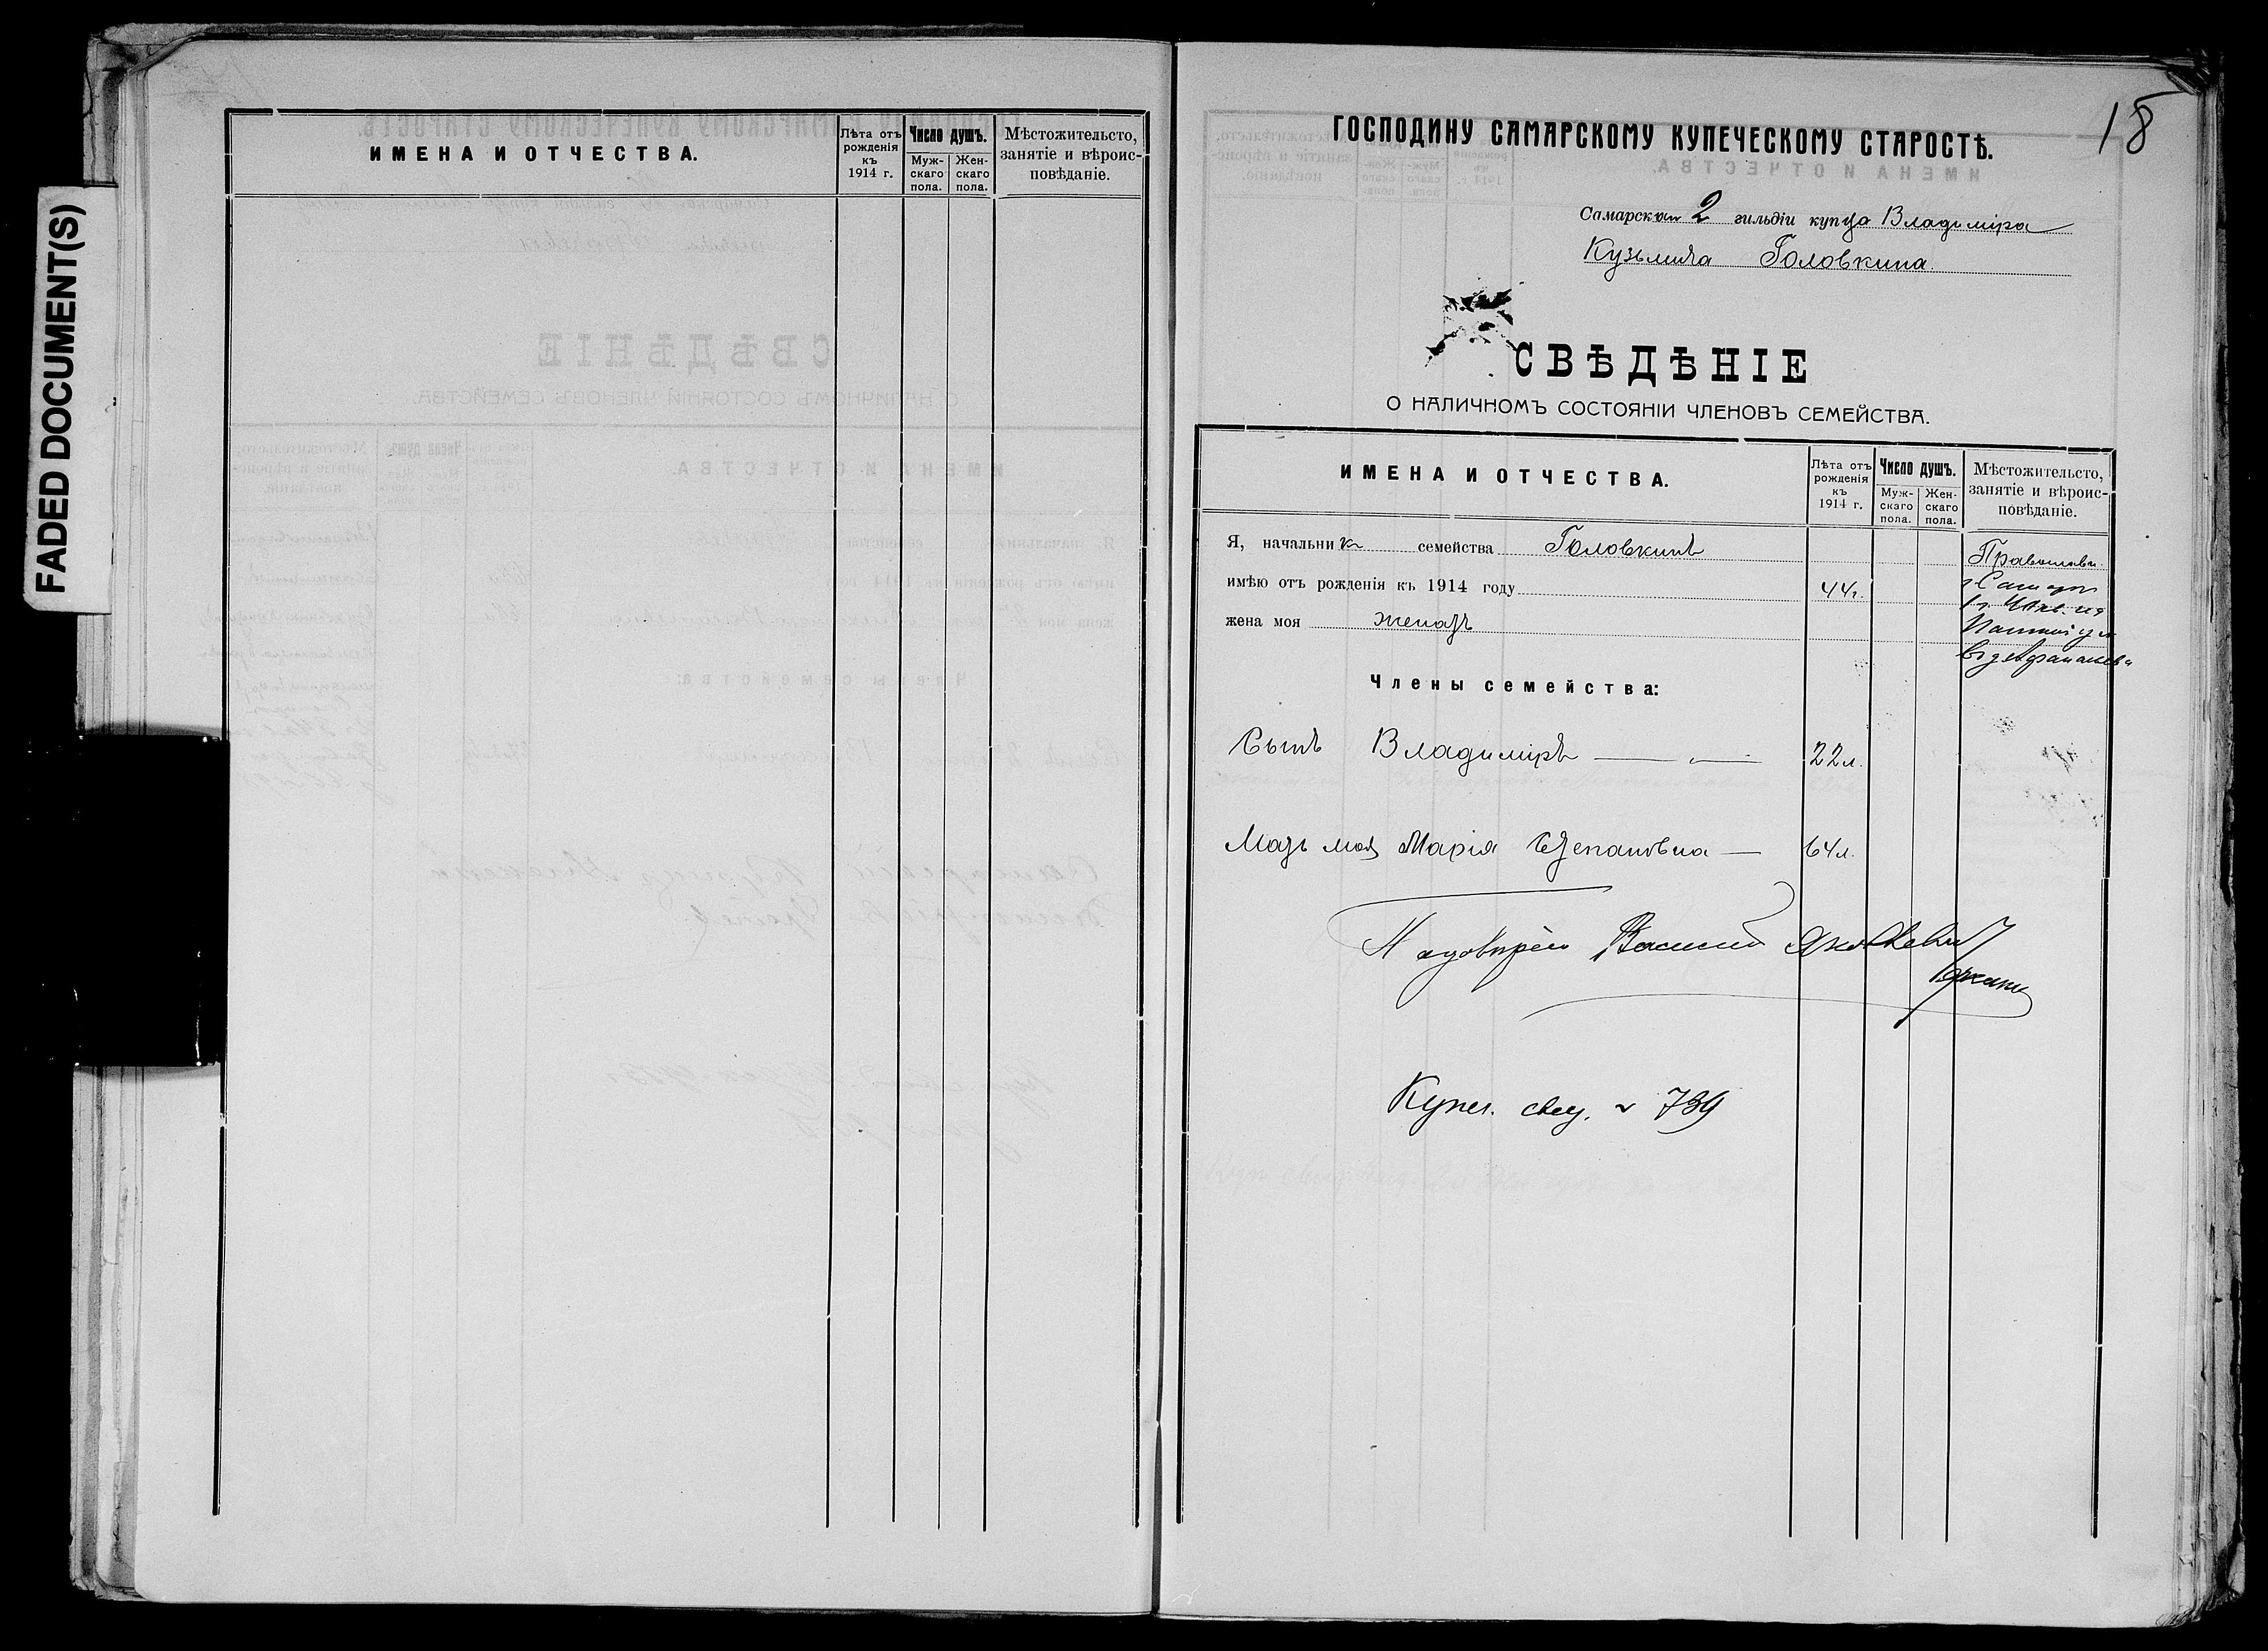 FADED DOCUMENT(S)
ИМЕНА И ОТЧЕСТВА.
Лѣта отъ рожденія къ 1914 г.
Число душъ.
Мужскаго пола.
Женскаго пола.
Мѣстожительсто, занятіе и вѣроисповѣданіе.
18
ГОСПОДИНУ САМАРСКОМУ КУПЕЧЕСКОМУ СТАРОСТѢ.
Самарскаго 2 гильдіи купца Владиміра
Кузьмича Головкина.
СВѢДѢНІЕ
О НАЛИЧНОМЪ СОСТОЯНІИ ЧЛЕНОВЪ СЕМЕЙСТВА.
ИМЕНА И ОТЧЕСТВА.
Лѣта отъ рожденія къ 1914 г.
Число душъ.
Мужскаго пола.
Женскаго пола.
Мѣстожительсто, занятіе и вѣроисповѣданіе.
Я, начальникъ семейства Головкинъ
Православн.
имѣю отъ рожденія къ 1914 году 44г.
г. Самара
жена моя женатъ
Члены семейства:
Сынъ Владиміръ — „ — 22л.
Мать моя Марія Степановна — 64л.
По довѣрію Василій Яковлевич
Купеч. свид. № 739